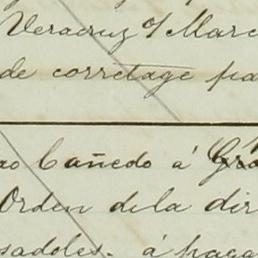 Veracruz o/ Marc
de corretage pa
ao Cañedo á Gra
Orden de la dir
sadoles. á paga